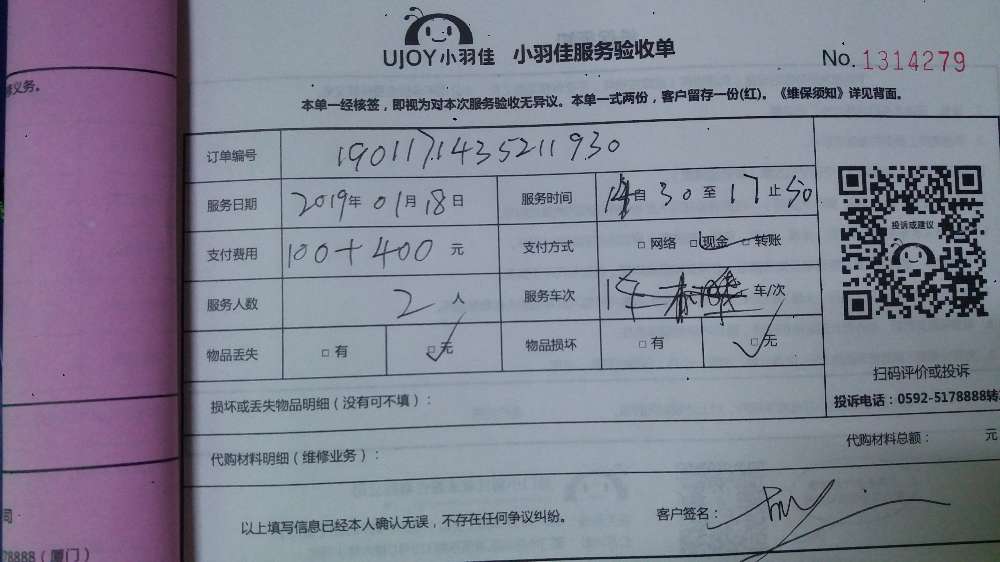 修义务。
UJOY小羽佳 小羽佳服务验收单
No. 1314279
本单一经核签，即视为对本次服务验收无异议。本单一式两份，客户留存一份(红)。《维保须知》详见背面。
订单编号 190117143521930
服务日期 2019年01月18日 服务时间 自30至17止50
支付费用 100+400 元 支付方式 □网络 □现金 □转账
投诉或建议
服务人数 2人 服务车次 车/次
物品丢失 □有 □无 物品损坏 □有 □无
扫码评价或投诉
投诉电话：0592-5178888转
损坏或丢失物品明细（没有可不填）：
代购材料明细（维修业务）： 代购材料总额： 元
司
以上填写信息已经本人确认无误，不存在任何争议纠纷。 客户签名：
78888（厦门）